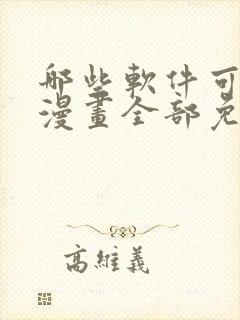 哪些軟件可
漫畫全部免
高維義